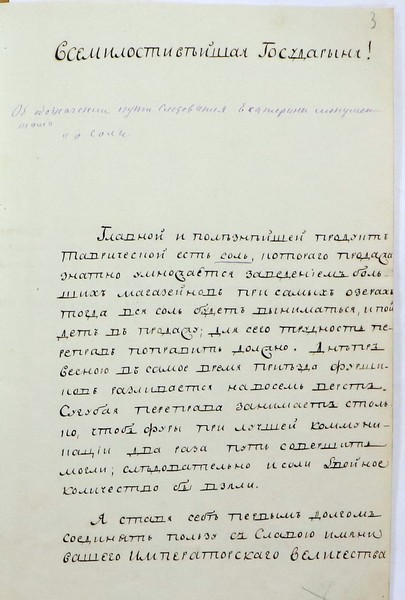 3
Всемилостивѣйшая Государыня!
Об обозначении пути следования Екатерины монумен-
тами
и о соли
Главной и полѣзнѣйшей продуктъ
Таврической есть соль, котораго продажа
знатно умножается заведенïемъ боль-
шихъ магазейновъ при самыхъ озерахъ
тогда вся соль будетъ выниматься, и пой
детъ въ продажу; для сего трудность пе-
реправъ поправить должно. Днѣпръ
весною въ самое время приѣзда фурщи-
ковъ разливается на восемь верстъ.
Сугубая переправа занимаетъ столь
ко, чтобъ фуры при лучшей коммуни-
кацïи два раза путь совершить
могли; слѣдовательно и соли двойное
количество бы взяли.
Я ставя себѣ первымъ долгомъ
соединять пользу съ Славою имяни
вашего Императорскаго величества